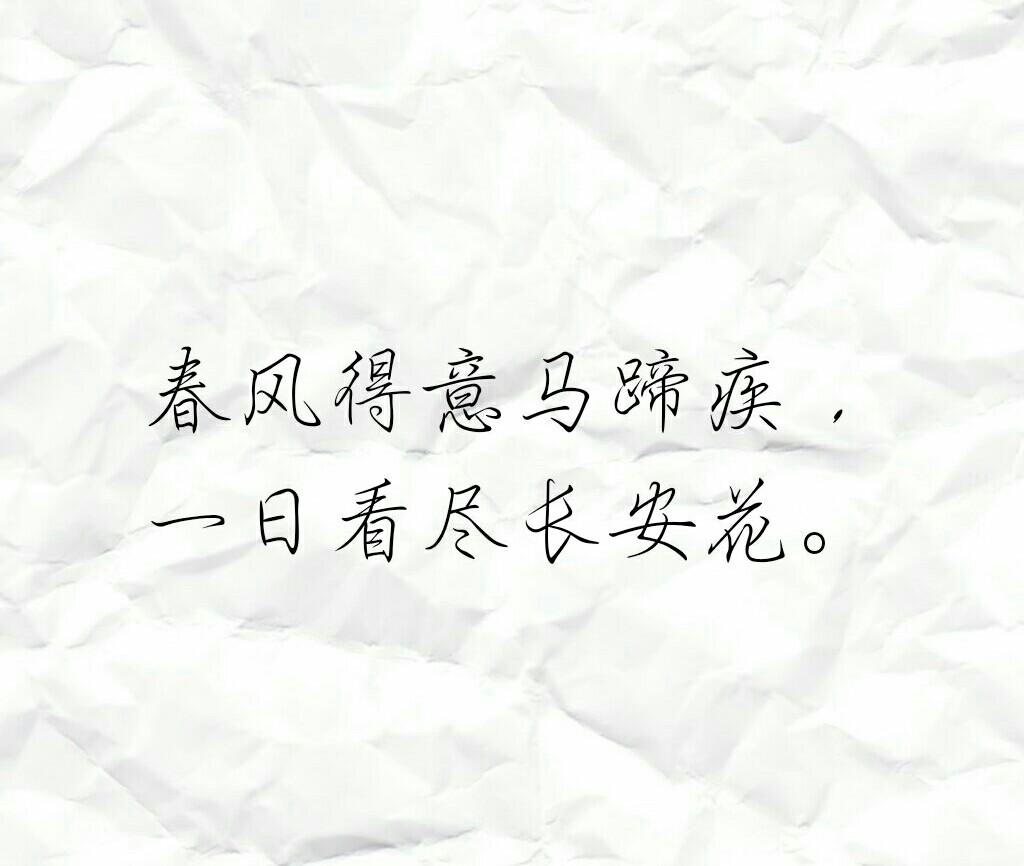 春风得意马蹄疾，
一日看尽长安花。